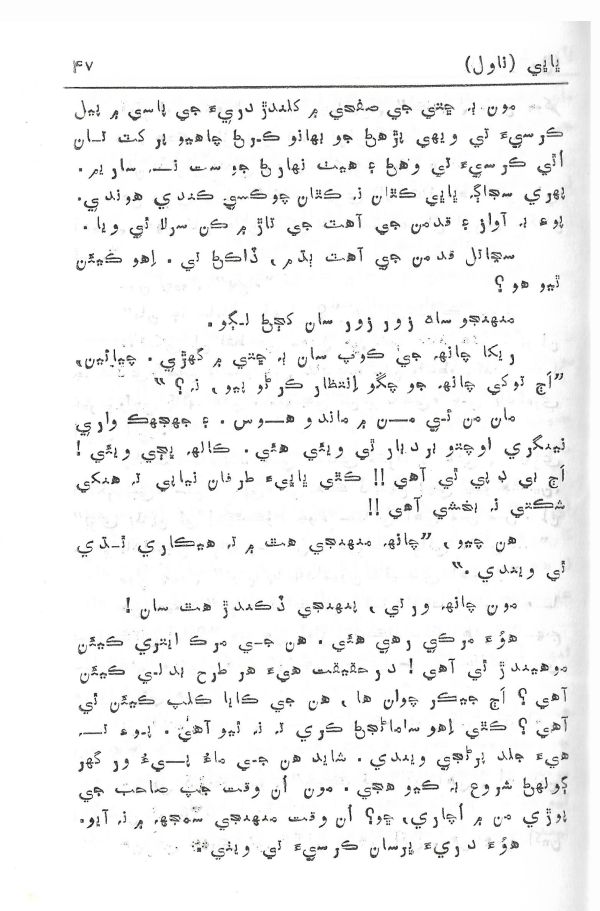 پاپي (ناول) ۴۷
مون به ڇتي جي صفحي ۾ کلندڙ دريءَ جي پاسي ۾ پيل
ڪرسيءَ تي ويهي پڙهڻ جو بهانو ڪرڻ چاهيو پر کٽ تان
اُٿي ڪرسيءَ تي وهڻ ۽ هيٺ نهارڻ جو ست نه ساريم .
پهري سڄاڳ پاپي ڪٿان نه ڪٿان چوڪسي ڪندي هوندي.
پوءِ به آواز ۽ قدمن جي آهٽ جي تاڙ ۾ ڪن سرلا ٿي ويا .
سڃاتل قدمن جي آهٽ ٻڌم ، ڏاڪڻ تي . اِهو ڪيئن
ٿيو هو ؟
منهنجو ساه زور زور سان کڄڻ لڳو .
ريکا چانهه جي ڪوپ سان به ڇتي ۾ گهڙي . چيائين،
”اَڄ توکي چانهه جو چڱو اِنتظار ڪرڻو پيو ، نه ؟ “
مان من ئي مـن ۾ ماندو هـوس . ۽ جهجهڪ واري
نينگري اوچتو بردبار ٿي ويئي هئي . ڪالهه ڀڄي ويئي !
اَڄ بي ڊپي ٿي آهي !! ڪٿي پاپيءَ طرفان نياپي ته هنکي
شڪتي نه بخشي آهي !!
هن چيو ، ”چانهه منهنجي هٿ ۾ ته هيڪاري ٿـڌي
ٿي ويندي .“
مون چانهه ورتي ، پنهنجي ڏڪندڙ هٿ سان !
هوءَ مرڪي رهي هئي . هن جي مرڪ ايتري ڪيئن
موهيندڙ ٿي آهي ! درحقيقت هيءَ هر طرح بدلي ڪيئن
آهي ؟ اَڄ جيڪر چوان ها ، هن جي ڪايا ڪلپ ڪيئن ٿي
آهي ؟ ڪٿي اِهو سامائجڻ ڪري ته نه ٿيو آهي . پوءِ تـه
هيءَ جلد پرڻجي ويندي . شايد هن جي ماءُ پـيءُ ور گهر
ڳولهڻ شروع به ڪيو هجي . مون اُن وقت جپ صاحب جي
پوڙي من ۾ اُچاري، ڇو؟ اُن وقت منهنجي سمجهه ۾ نه آيو.
هوءَ دريءَ ڀرسان ڪرسيءَ تي ويٺي .